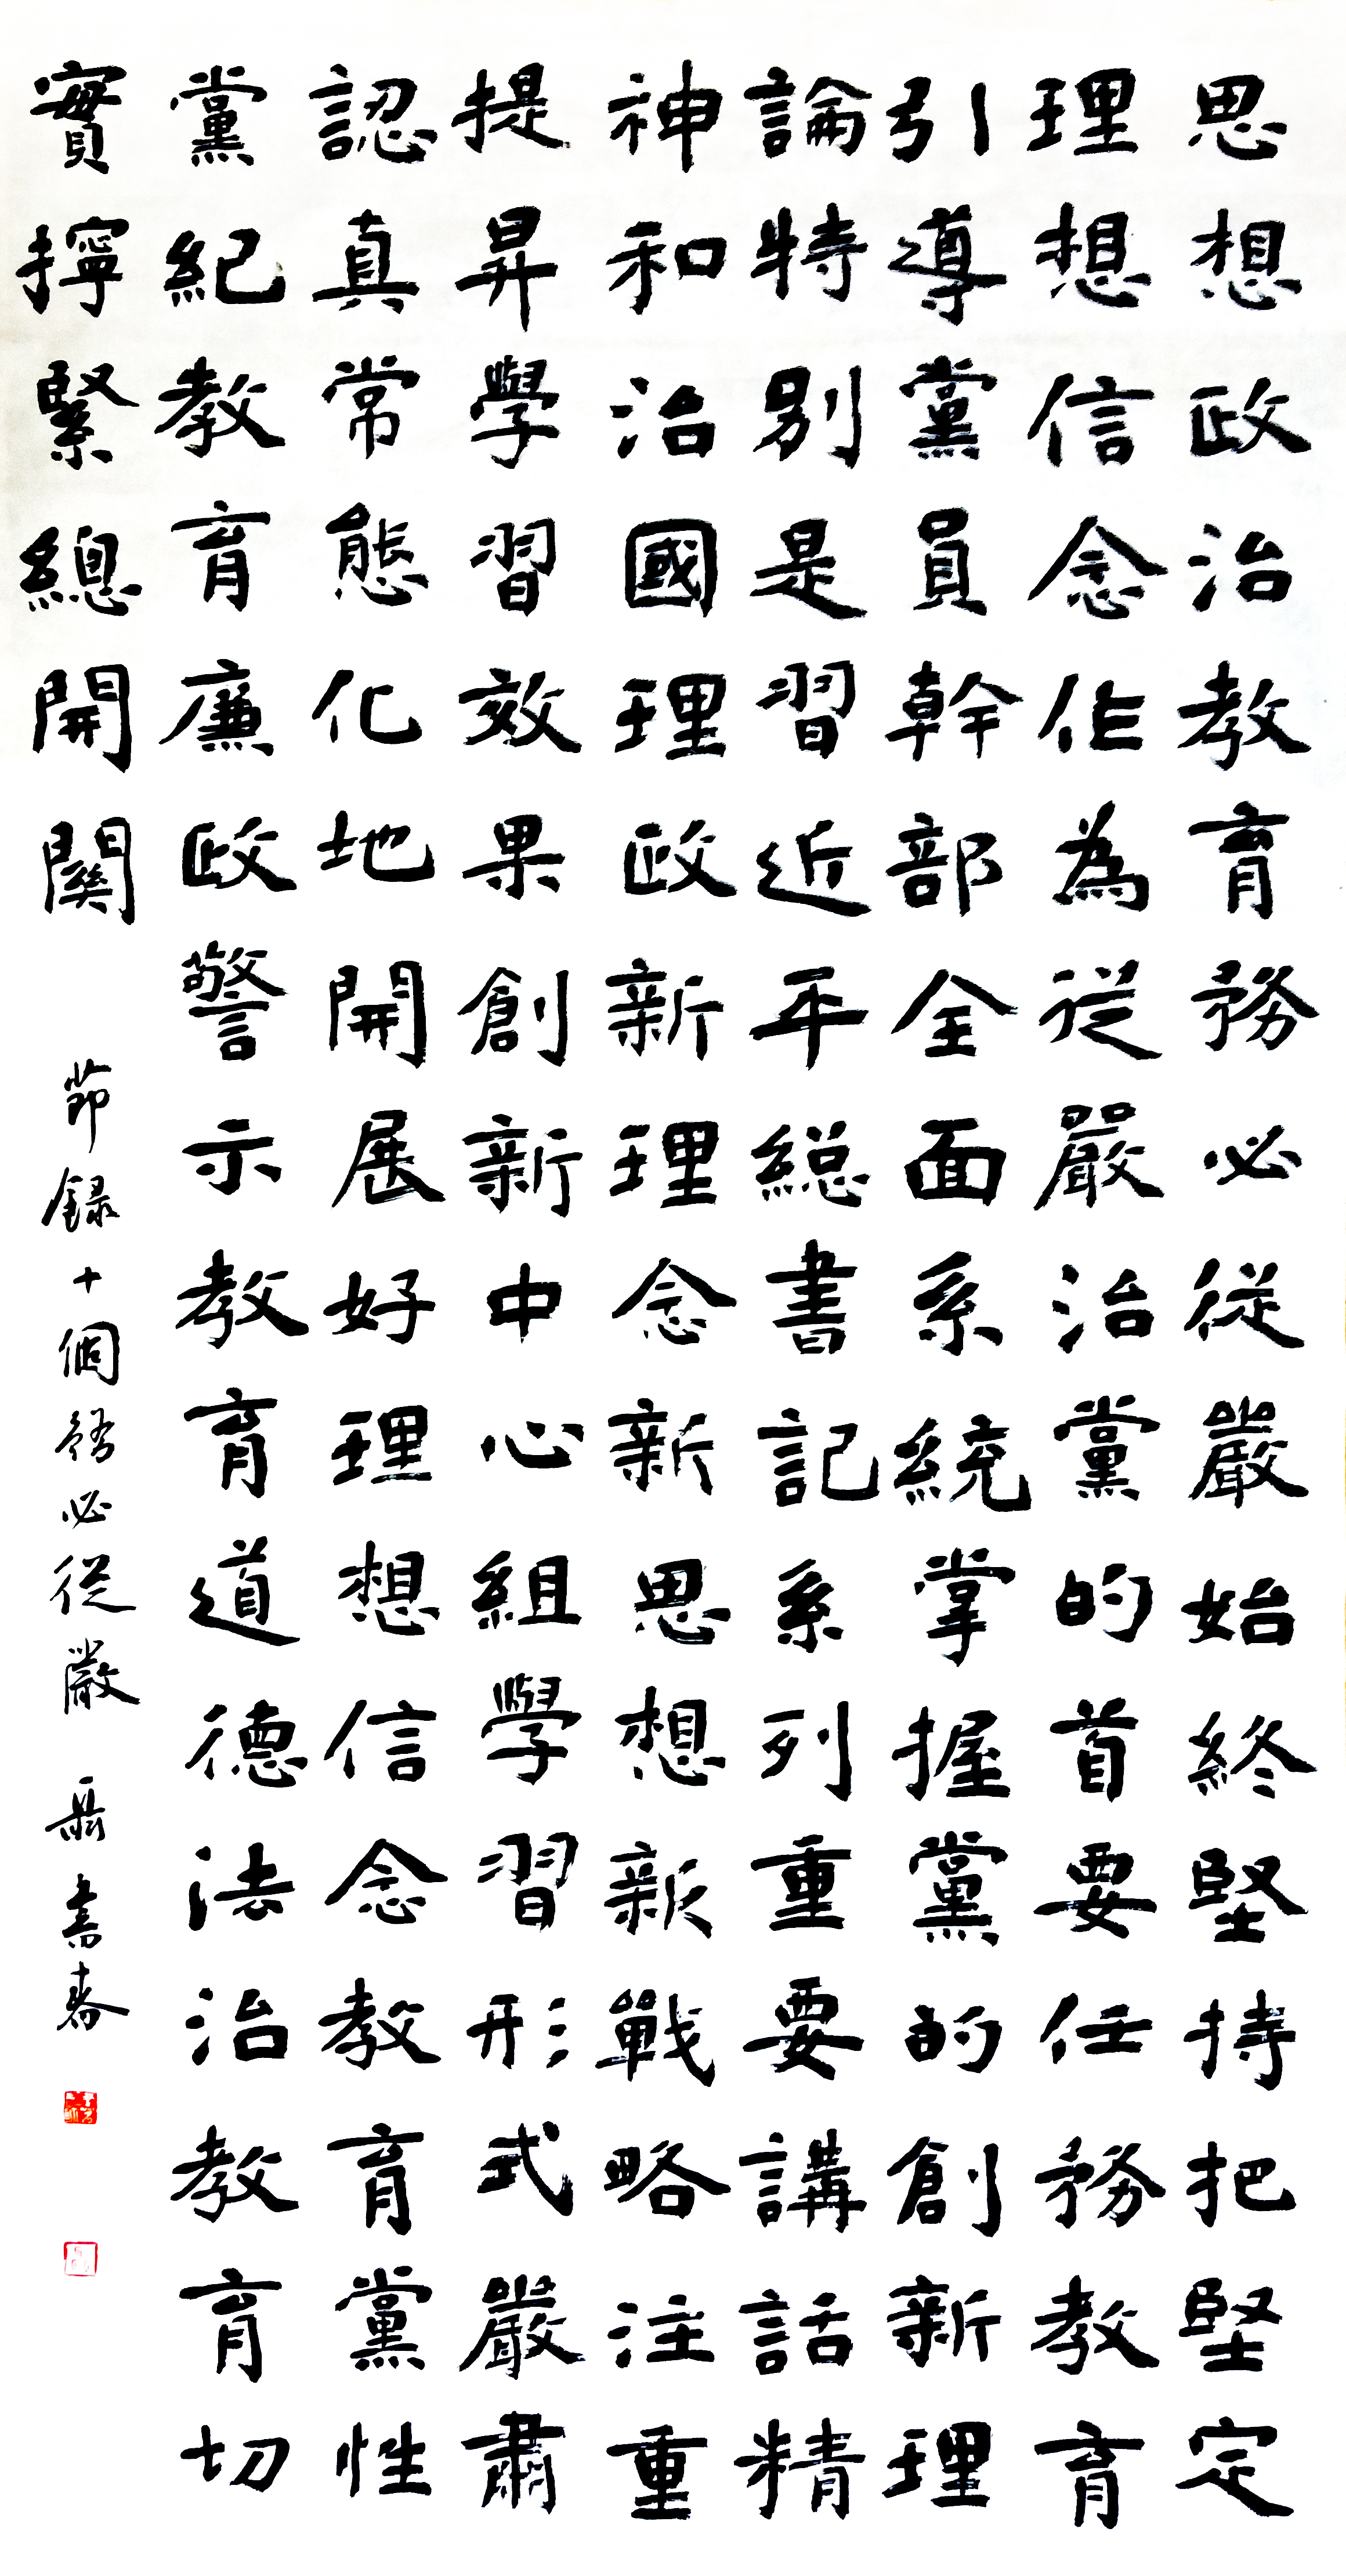 思想政治教育務必從嚴始終堅持把堅定
理想信念作為從嚴治黨的首要任務教育
引導黨員幹部全面系統掌握黨的創新理
論特別是習近平総書記系列重要講話精
神和治國理政新理念新思想新戰略注重
提昇學習效果創新中心組學習形式嚴肅
認真常態化地開展好理想信念教育黨性
黨紀教育廉政警示教育道德法治教育切
實擰緊總開關
節錄十個務必從嚴